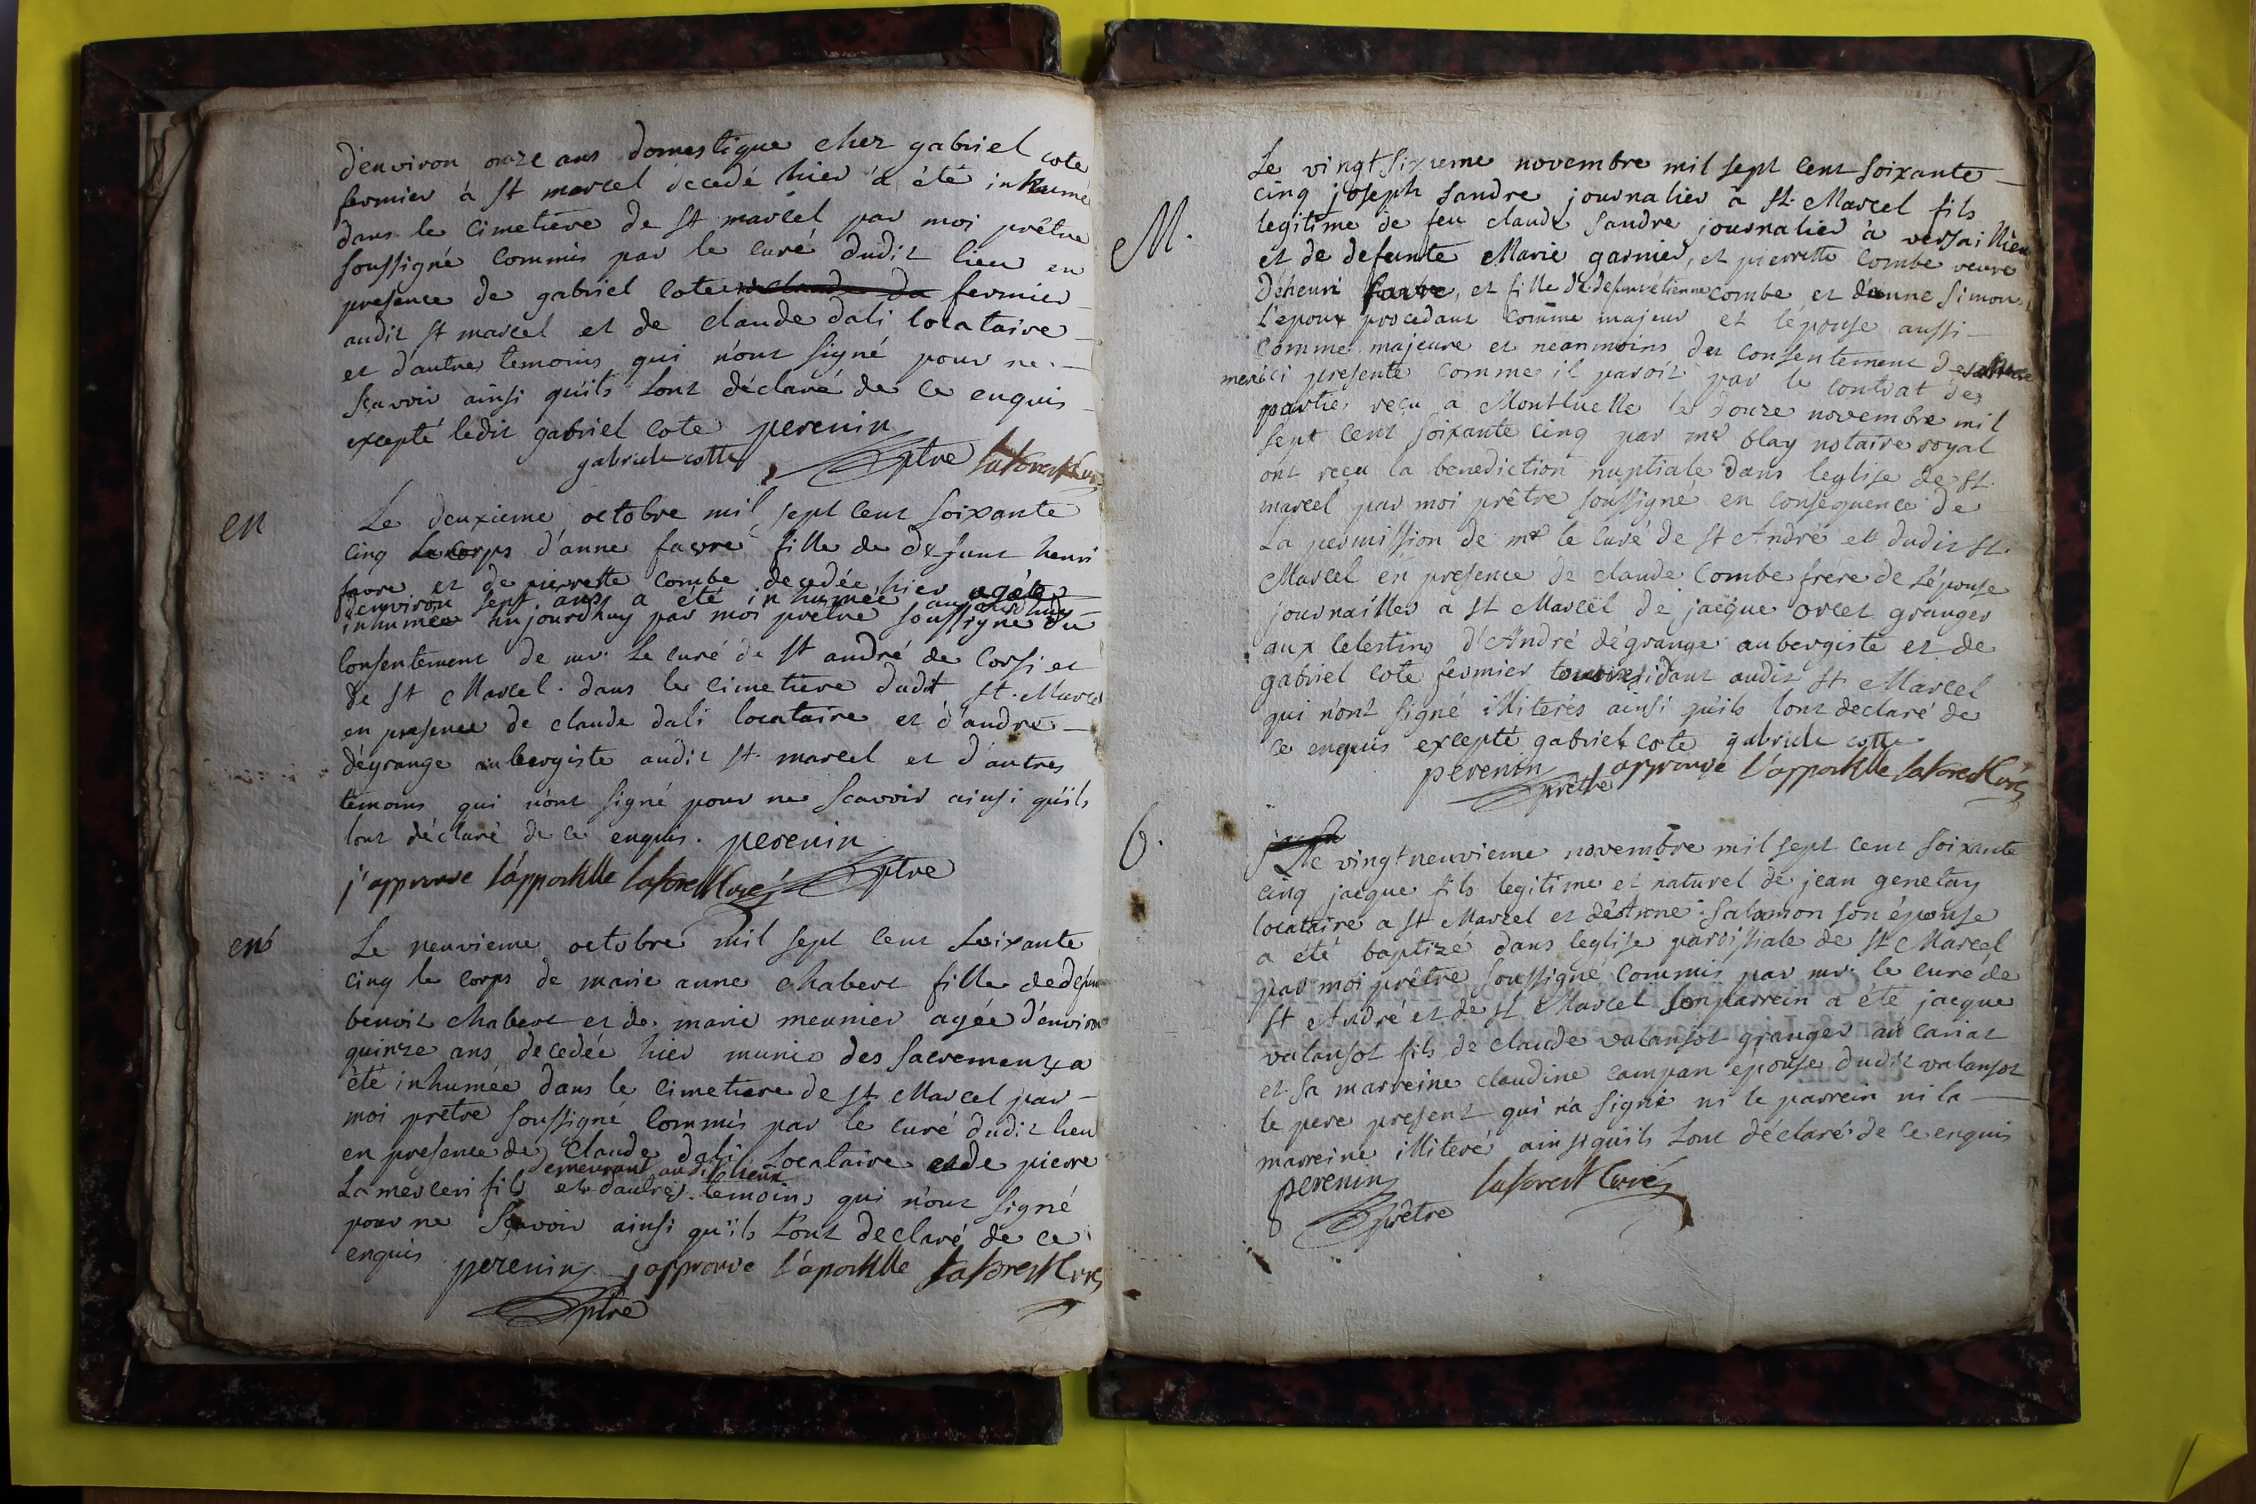 d'environ onze ans domestique chez gabriel cote
fermier à st marcel décedé hier a été inhumé
dans le cimetiere de st marcel par moi prêtre
soussigné commis par le curé dudit lieu en
presence de gabriel cote fermier
audit st marcel et de claude dali locataire
et d'autres temoins qui n'ont signé pour ne
sçavoir ainsi qu'ils l'ont déclaré de ce enquis
excepté ledit gabriel cote perenin
gabriele cotte ptre laforest Curé
en
Le deuxieme octobre mil sept cent soixante
cinq le corps d'anne favre fille de defunt henri
favre et de pierrette combe decedée hier agée
d'environ sept ans a été inhumée aujourdhuy
inhumée aujourdhuy par moi prêtre soussigné du
consentement de mr. le curé de st andré de Corsi et
de st Marcel dans le cimetiere dudit st. Marcel
en presence de claude dali locataire et d'andre
dégrange aubergiste audit st marcel et d'autres
temoins qui n'ont signé pour ne scavoir ainsi qu'ils
l'ont déclaré de ce enquis. perenin
j'approuve l'appostille laforest Curé ptre
ent
Le neuvieme octobre mil sept cent soixante
cinq le corps de marie anne chabert fille de defun
benoit chabert et de marie meunier agée d'environ
quinze ans decedée hier munie des sacrements a
été inhumée dans le cimetiere de st Marcel par
moi prêtre soussigné commis par le curé dudit lieu
en presence de claude dali locataire et de pierre
demeurant audit lieux
Lamerceri fils et d'autres temoins qui n'ont signé
pour ne sçavoir ainsi qu'ils l'ont declaré de ce
enquis perenin j'approuve l'apostille laforest Curé
ptre
M.
Le vingt sixieme novembre mil sept cent soixante
cinq joseph sandre journalier à st. Marcel fils
legitime de feu claude sandre journalier à versaillieu
et de defunte Marie garnier, et pierrette combe veuve
d'henri favre, et fille de defunt étienne combe et d'anne simon.
L'epoux procedant comme majeur et l'épouse aussi
comme majeure et neanmoins du consentement de sa
mere ici presente comme il paroit par le contrat des
parties reçu à Montluelle le douze novembre mil
sept cent soixante cinq par me blay notaire royal
ont reçu la benediction nuptiale dans l'eglise de st.
marcel par moi prêtre soussigné en consequence de
la permission de mr le curé de st André et dudit st.
Marcel en presence de claude Combe frére de l'épouse
journaillier a st Marcel de jaéque orcet granger
aux celestins d'André dégrange aubergiste et de
gabriel cote fermier tous residant audit st. Marcel
qui n'ont signé illiterés ainsi qu'ils l'ont declaré de
ce enquis excepté gabriel cote gabriele cotte
perenin japprouve l'appostille laforest Curé
prêtre
b.
Le vingt neuvieme novembre mil sept cent soixante
cinq jacque fils legitime et naturel de jean genetay
locataire a st Marcel et d'éstiene salamon son épouse
a été baptize dans l'eglise paroissiale de st Marcel
par moi prêtre soussigné commis par mr. le curé de
st André et de st Marcel son parrein a été jacque
valansot fils de claude valansot granger au cariat
et sa marreine claudine campan epouse dudit valansot
le pere present qui n'a signé ni le parrein ni la
marreine illiteré ainsi qu'ils l'ont déclaré de ce enquis
perenin laforest Curé
prêtre